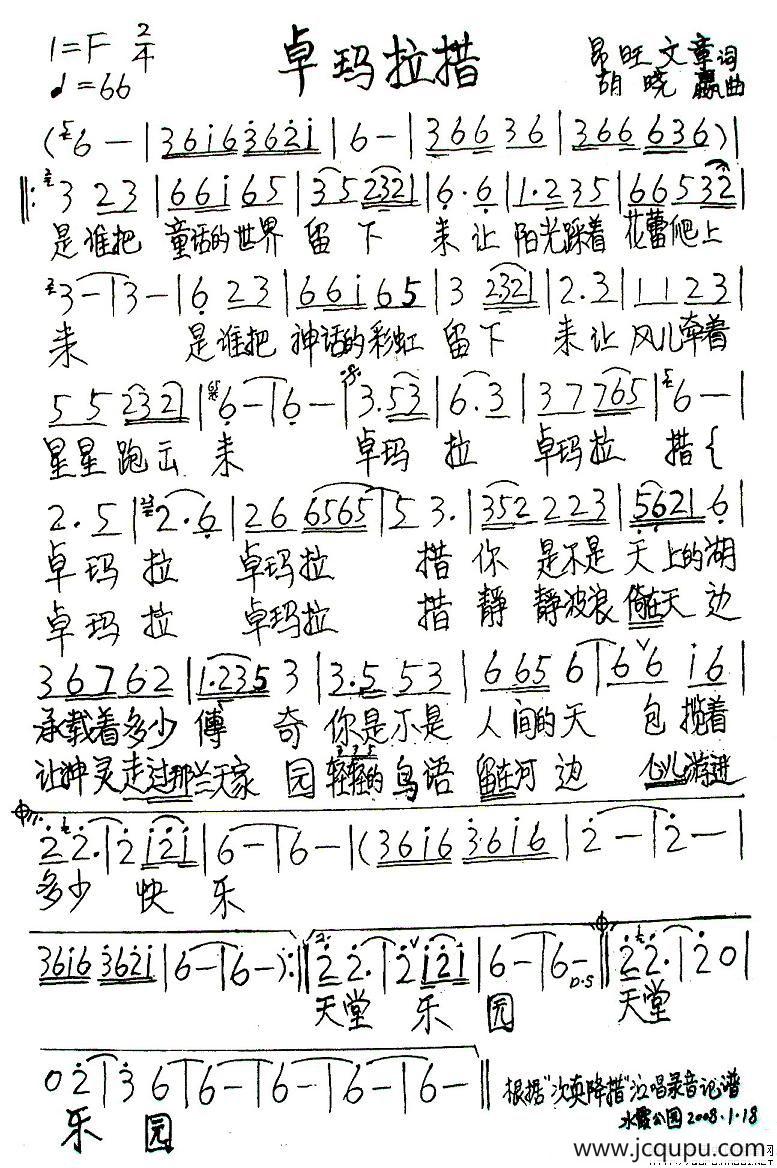 1=F 2/4
♩=66
卓玛拉措
昂旺文章词
胡晓嬴曲
(6 — | 3 6 i 6 3 6 2 i | 6 — | 3 6 6 3 6 | 3 6 6 6 3 6 ) |
‖: 3 2 3 | 6 6 i 6 5 | 3 5 2 3 2 1 | 6 · 6 | 1 · 2 3 5 | 6 6 5 3 2 |
是谁把 童话的世界 留 下 来 让 阳光踩着 花蕾爬上
3 — | 3 — | 6 2 3 | 6 6 i 6 5 | 3 2 3 2 1 | 2 . 3 | 1 1 2 3 |
来 是谁把 神话的彩虹 留 下 来 让 风儿牵着
5 5 2 3 2 1 | 6 — | 6 — | 3 . 5 3 | 6 . 3 | 3 7 7 6 5 | 6 — |
星星跑出来 卓玛 拉 卓玛拉 措 {
2 . 5 | 2 . 6 | 2 6 6 5 6 5 | 5 3 . | 3 5 2 2 2 3 | 5 6 2 1 6 |
卓玛 拉 卓玛拉 措 你 是不是 天上的湖
卓玛 拉 卓玛拉 措 静 静波浪 倚在天 边
3 6 7 6 2 | 1 . 2 3 5 3 | 3 . 5 5 3 | 6 6 5 6 | 6 6 i 6 |
承载着多少 傳 奇 你是不是 人间的天 包 揽着
让神灵走过那兰天家 园 轻轻的 鸟语 留在河 边 心儿游进
2 2 . | 2 i 2 i | 6 — | 6 — | ( 3 6 i 6 3 6 i 6 | 2 — | 2 — |
多少 快 乐
3 6 i 6 3 6 2 i | 6 — | 6 — ) :‖ 2 2 . | 2 i 2 i | 6 — | 6 — D.S ‖ 2 2 . | 2 0 |
天堂 乐 园 天堂
0 2 | 3 6 | 6 — | 6 — | 6 — | 6 — | 6 — ‖
乐 园
根据"次卖降措"泣唱录音记谱
水霞公园 2008.1.18
www.jcqupu.com